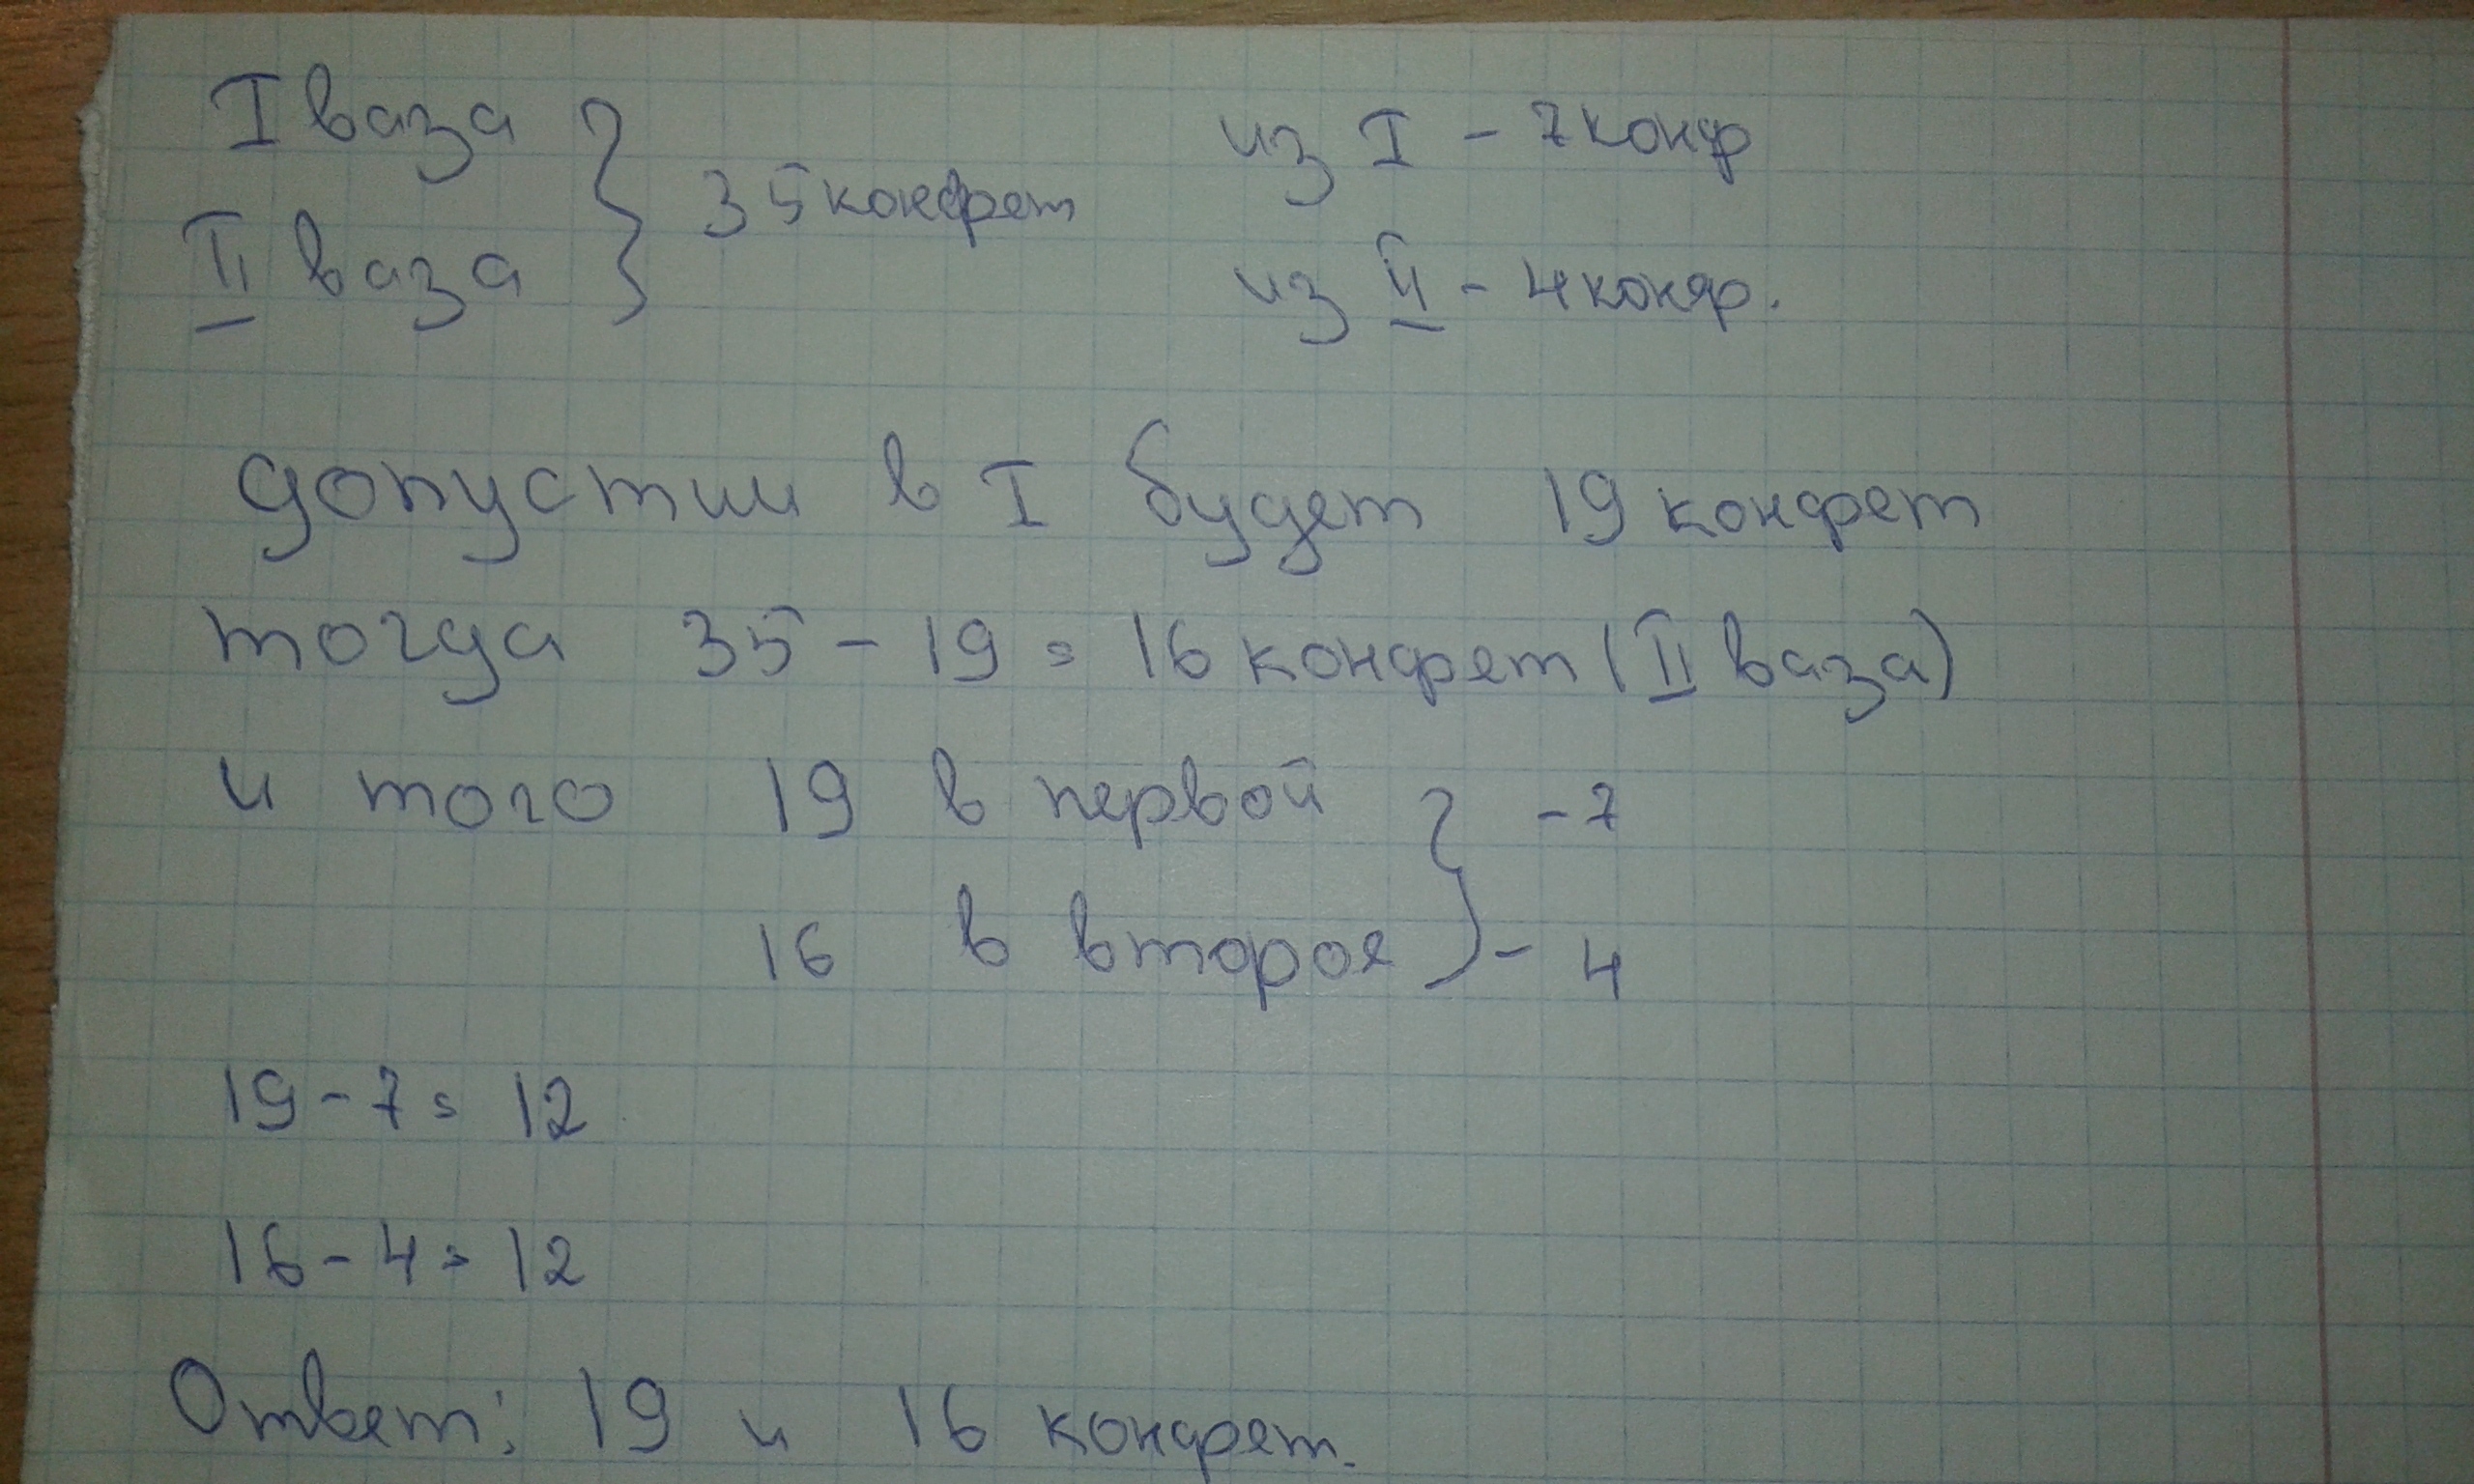 I ваза
II ваза
} 35 конфет
из I - 7 конф
из II - 4 конф.
допустим в I будет 19 конфет
тогда 35 - 19 = 16 конфет (II ваза)
и того 19 в первой } - 7
16 в второе } - 4
19 - 7 = 12
16 - 4 = 12
Ответ: 19 и 16 конфет.